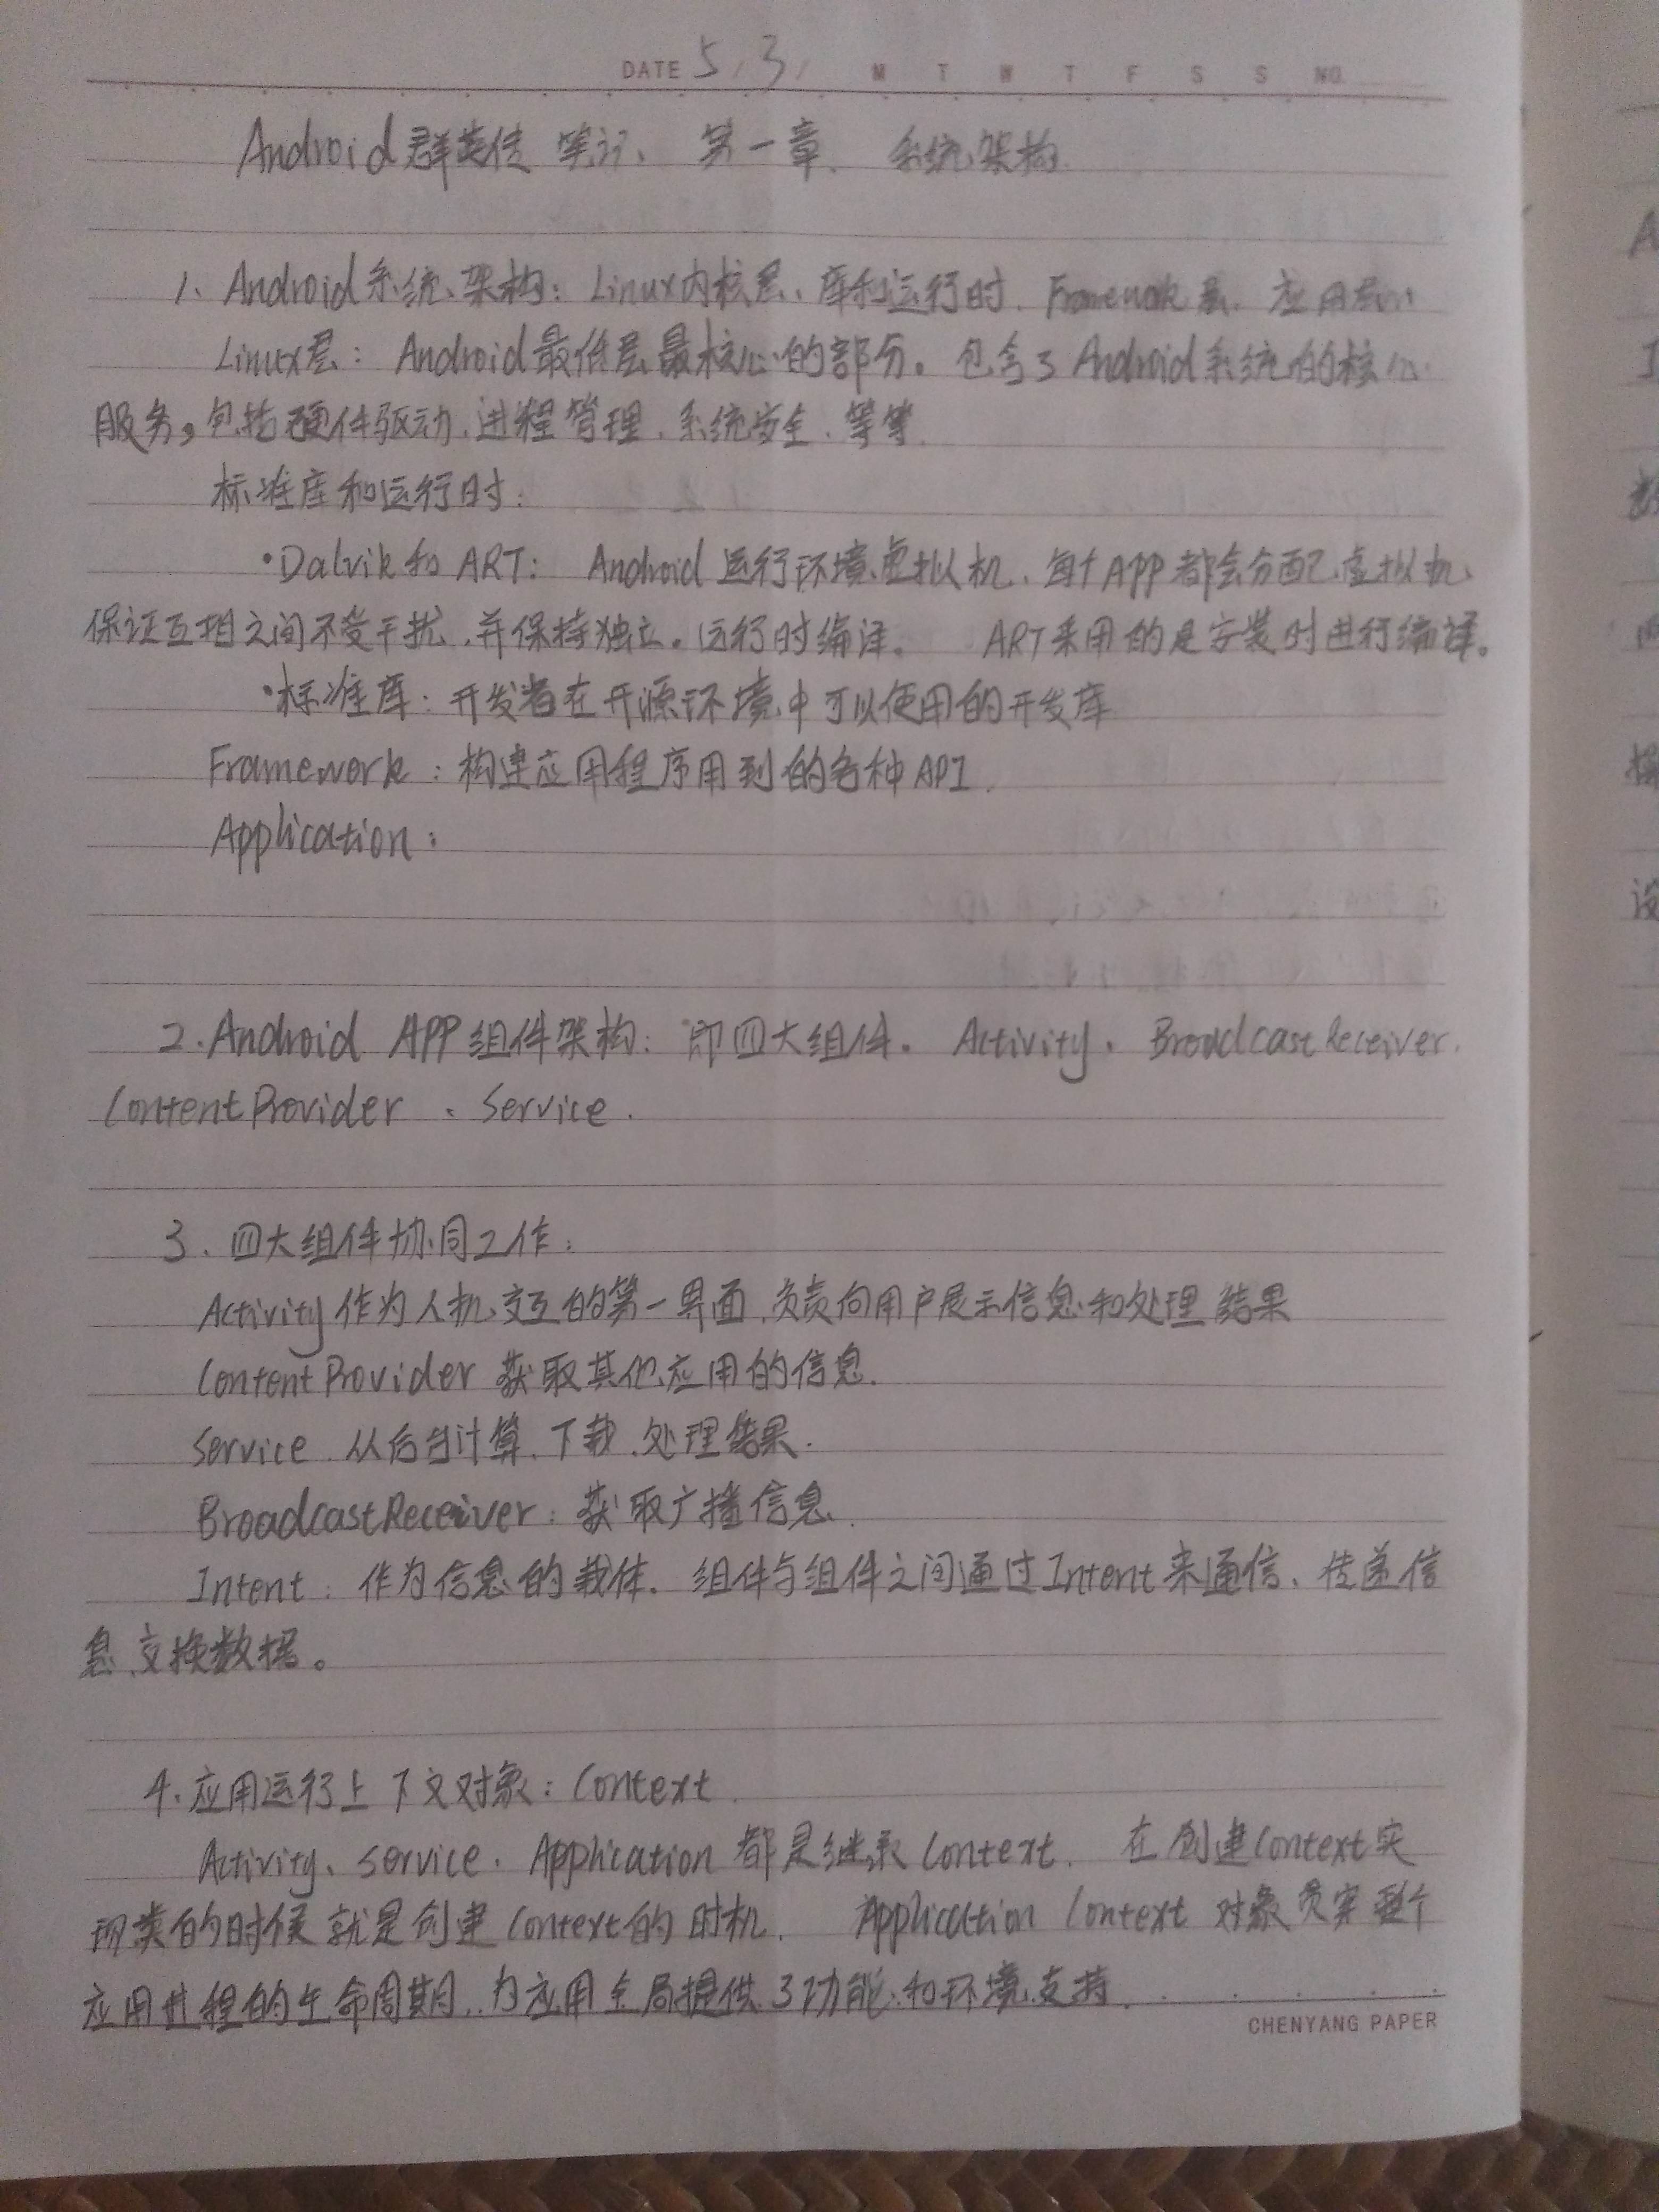 DATE 5 / 3 / M T W T F S S NO.
Android群英传 笔记、 第一章. 系统架构
1、Android系统架构：Linux内核层、库和运行时、Framework层、应用层
Linux层：Android最低层最核心的部分。包含了Android系统的核心
服务，包括硬件驱动、进程管理、系统安全、等等.
标准库和运行时：
•Dalvik和ART： Android运行环境虚拟机、每个APP都会分配虚拟机、
保证互相之间不受干扰、并保持独立。运行时编译。 ART采用的是安装时进行编译。
•标准库：开发者在开源环境中可以使用的开发库
Framework：构建应用程序用到的各种API.
Application：
2.Android APP组件架构：即四大组件。Activity、BroadcastReceiver.
ContentProvider 、Service.
3、四大组件协同工作：
Activity作为人机交互的第一界面、负责向用户展示信息和处理结果
ContentProvider 获取其他应用的信息.
Service 从后台计算、下载、处理结果.
BroadcastReceiver：获取广播信息.
Intent：作为信息的载体、组件与组件之间通过Intent来通信、传递信
息、交换数据。
4、应用运行上下文对象：Context.
Activity、Service、Application都是继承Context. 在创建Context实
现类的时候就是创建Context的时机. Application Context 对象贯穿整个
应用进程的生命周期、为应用全局提供了功能和环境支持.
CHENYANG PAPER